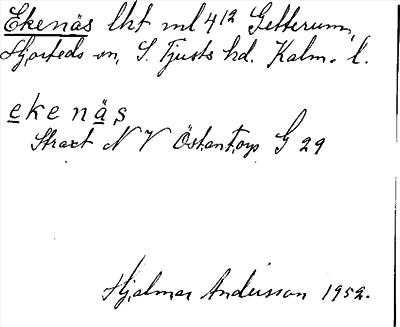 Ekenäs lht ml 4¹² Getterum,
Hjorteds sn, S. Tjusts hd. Kalm. l.
ekenäs
Straxt N V Östantorp G 29
Hjalmar Andersson 1952.